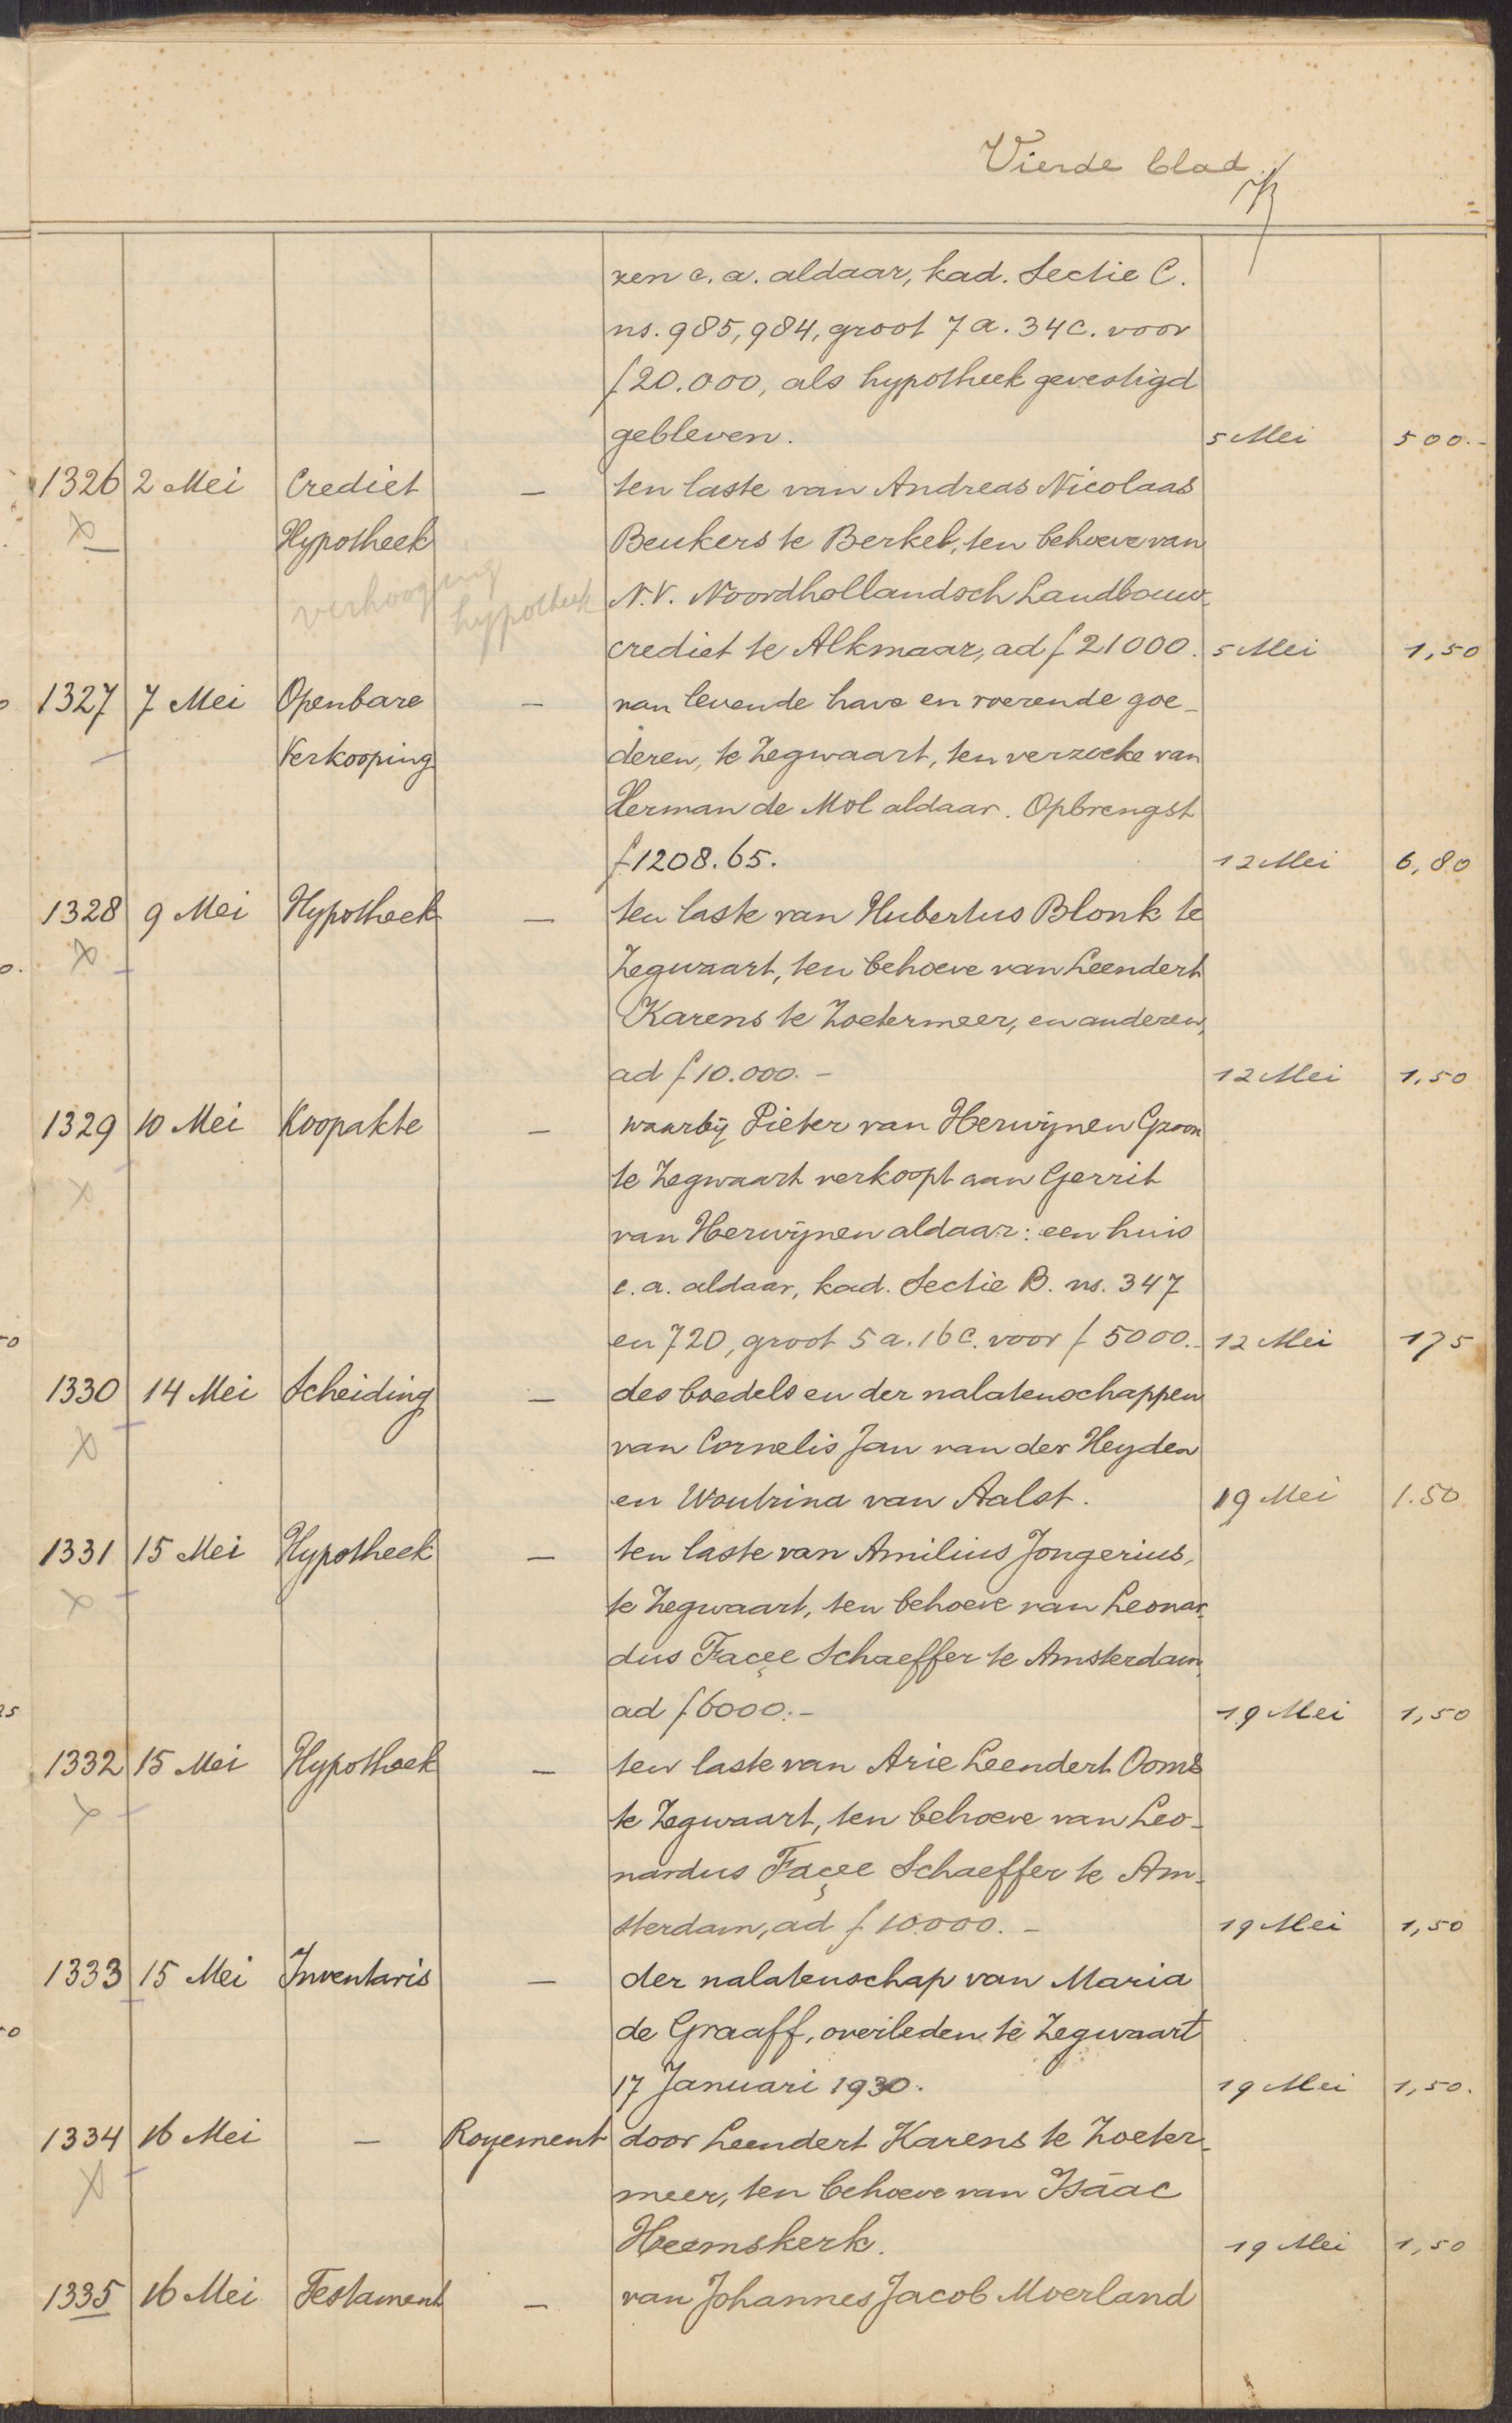 Vierde blad
zen c.a. aldaar, kad. Sectie C.
ns. 985, 984, groot 7 a. 34 c. voor
f 20.000, als hypotheek gevestigd
gebleven. 5 Mei 500.-
1326 2 Mei Crediet — ten laste van Andreas Nicolaas
Hypotheek Beukers te Berkel, ten behoeve van
verhooging hypotheek N.V. Noordhollandsch Landbouw-
crediet te Alkmaar, ad f 21000. 5 Mei 1,50
1327 7 Mei Openbare — van levende have en roerende goe-
Verkooping deren, te Zegwaart, ten verzoeke van
Herman de Mol aldaar. Opbrengst
f 1208.65. 12 Mei 6,80
1328 9 Mei Hypotheek — ten laste van Hubertus Blonk te
Zegwaart, ten behoeve van Leendert
Karens te Zoetermeer, en anderen,
ad f 10.000.- 12 Mei 1,50
1329 10 Mei Koopakte — waarbij Pieter van Herwijnen Gzoon
te Zegwaart verkoopt aan Gerrit
van Herwijnen aldaar: een huis
c.a. aldaar, kad. Sectie B. ns. 347
en 720, groot 5 a. 16 c. voor f 5000.- 12 Mei 175
1330 14 Mei Scheiding — des boedels en der nalatenschappen
van Cornelis Jan van der Heyden
en Woutrina van Aalst. 19 Mei 1.50
1331 15 Mei Hypotheek — ten laste van Amilius Jongerius,
te Zegwaart, ten behoeve van Leonar-
dus Façee Schaeffer te Amsterdam,
ad f 6000.- 19 Mei 1,50
1332 15 Mei Hypotheek — ten laste van Arie Leendert Ooms
te Zegwaart, ten behoeve van Leo-
nardus Façee Schaeffer te Am-
sterdam, ad f 10.000.- 19 Mei 1,50
1333 15 Mei Inventaris — der nalatenschap van Maria
de Graaff, overleden te Zegwaart
17 Januari 1930. 19 Mei 1,50.
1334 16 Mei — Royement door Leendert Karens te Zoeter-
meer, ten behoeve van Isäac
Heemskerk. 19 Mei 1,50
1335 16 Mei Testament — van Johannes Jacob Moerland